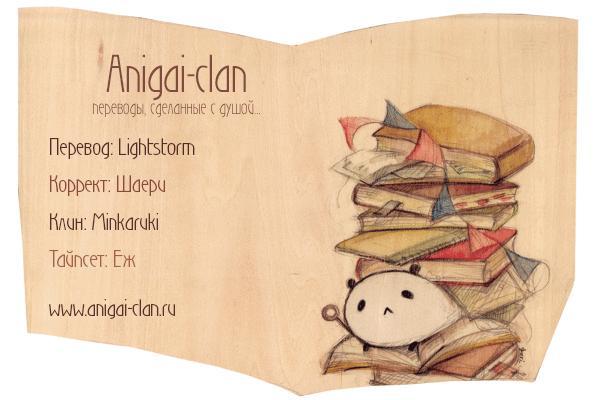 Anigai-clan
переводы, сделанные с душой...
Перевод: Lightstorm
Коррект: Шаери
Клин: Minkaruki
Тайпсет: Еж
www.anigai-clan.ru